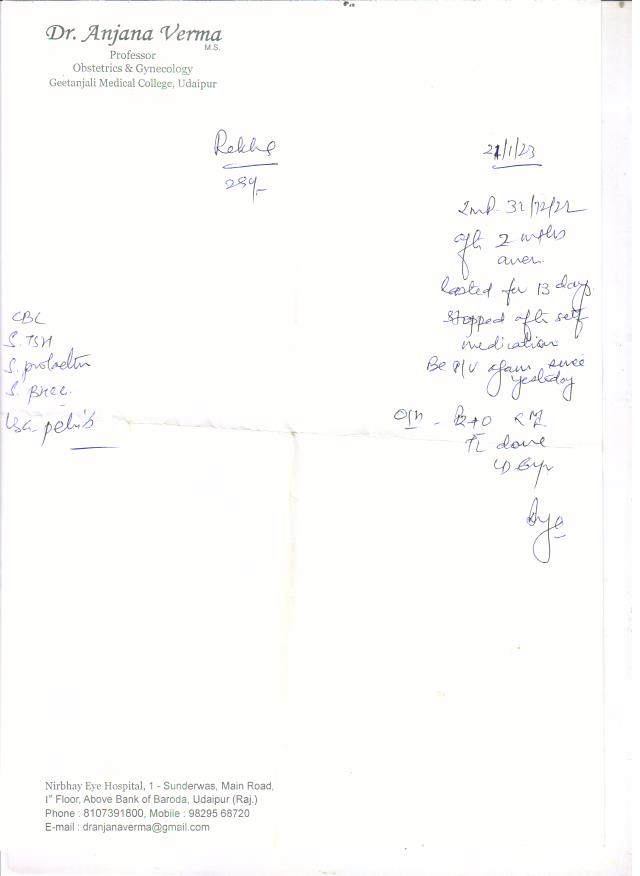 Dr. Anjana Verma
M.S.
Professor
Obstetrics & Gynecology
Geetanjali Medical College, Udaipur
Rekha
21/1/23
29y
LMP. 31/12/22
after 2 mths
amen.
lasted for 13 days
stopped after self
medication
P/V again since
yesterday
CBC
S. TSH
S. prolactin
S. BHCG
USG pelvis
O/H -
TL done
LD 6yr
Nirbhay Eye Hospital, 1 - Sunderwas, Main Road,
1st Floor, Above Bank of Baroda, Udaipur (Raj.)
Phone : 8107391800, Mobile : 98295 68720
E-mail : dranjanaverma@gmail.com